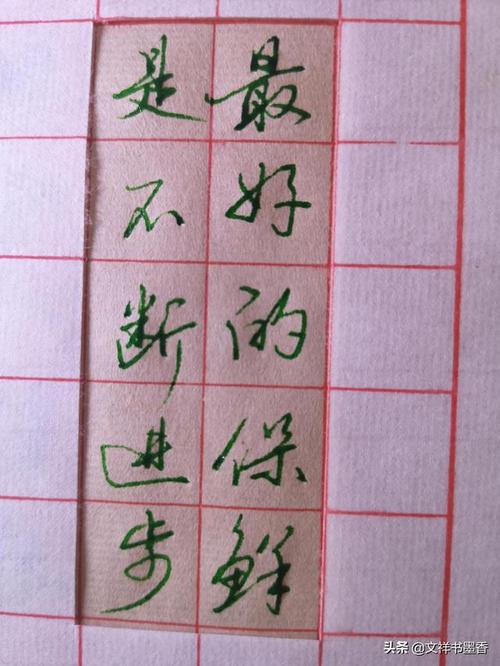 最好的保鲜
是不断进步
头条 @文祥书墨香